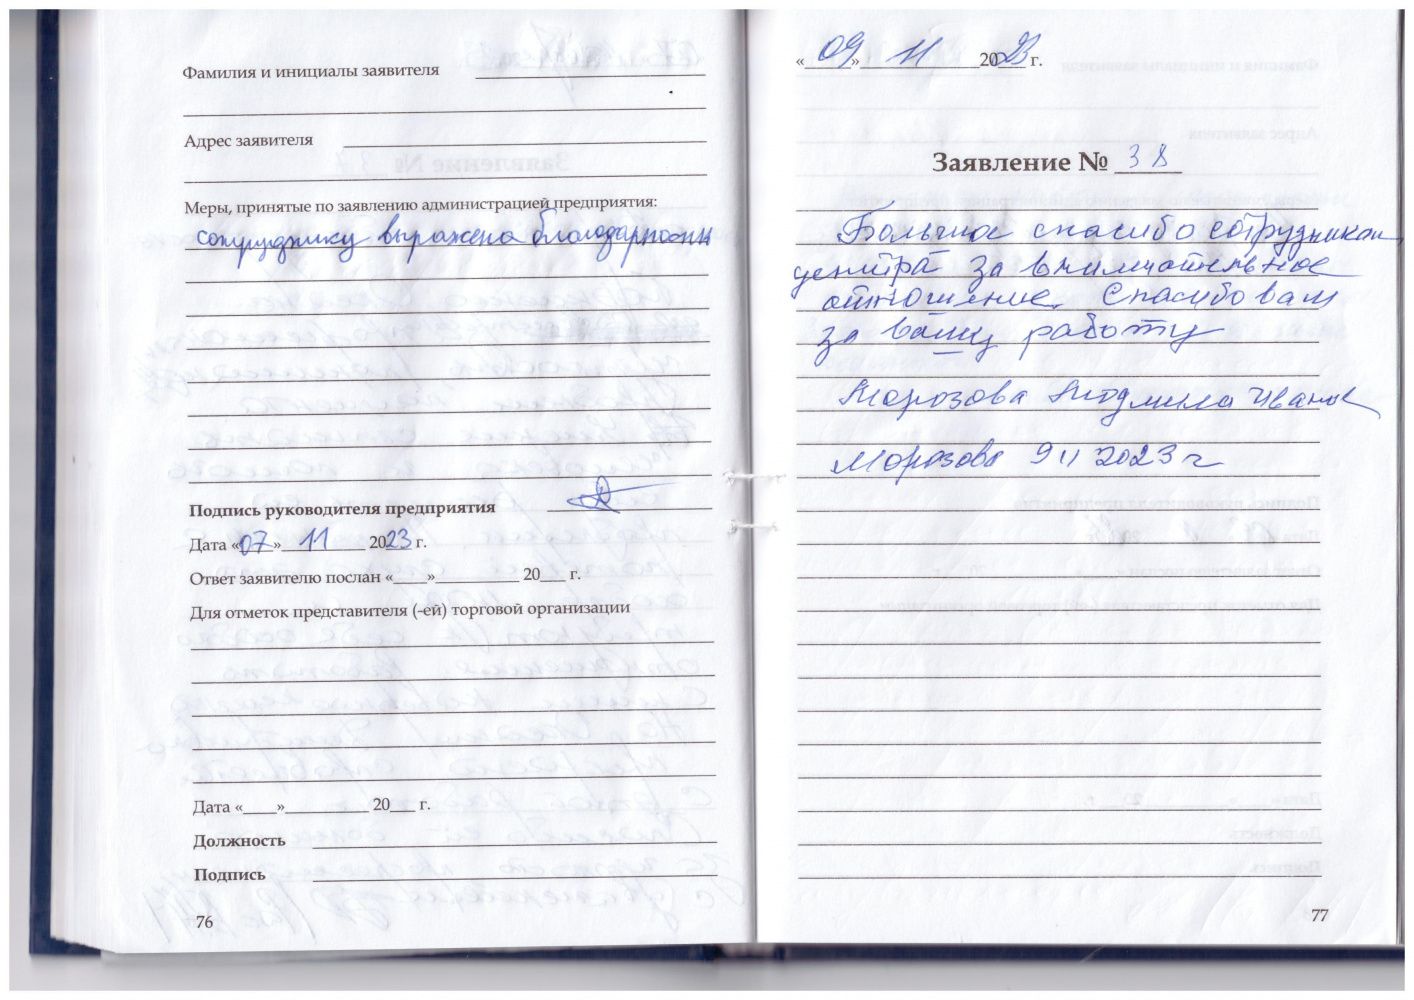 Фамилия и инициалы заявителя
Адрес заявителя
Меры, принятые по заявлению администрацией предприятия:
сотруднику выражена благодарность
Подпись руководителя предприятия
Дата «07» 11 2023 г.
Ответ заявителю послан «____»__________ 20___ г.
Для отметок представителя (-ей) торговой организации
Дата «____»__________ 20___ г.
Должность
Подпись
76
«09» 11 2023 г.
Заявление № 38
Большое спасибо сотрудникам
центра за внимательное
отношение. Спасибо вам
за вашу работу
Морозова Людмила Иванов
Морозова 9 11 2023 г
77